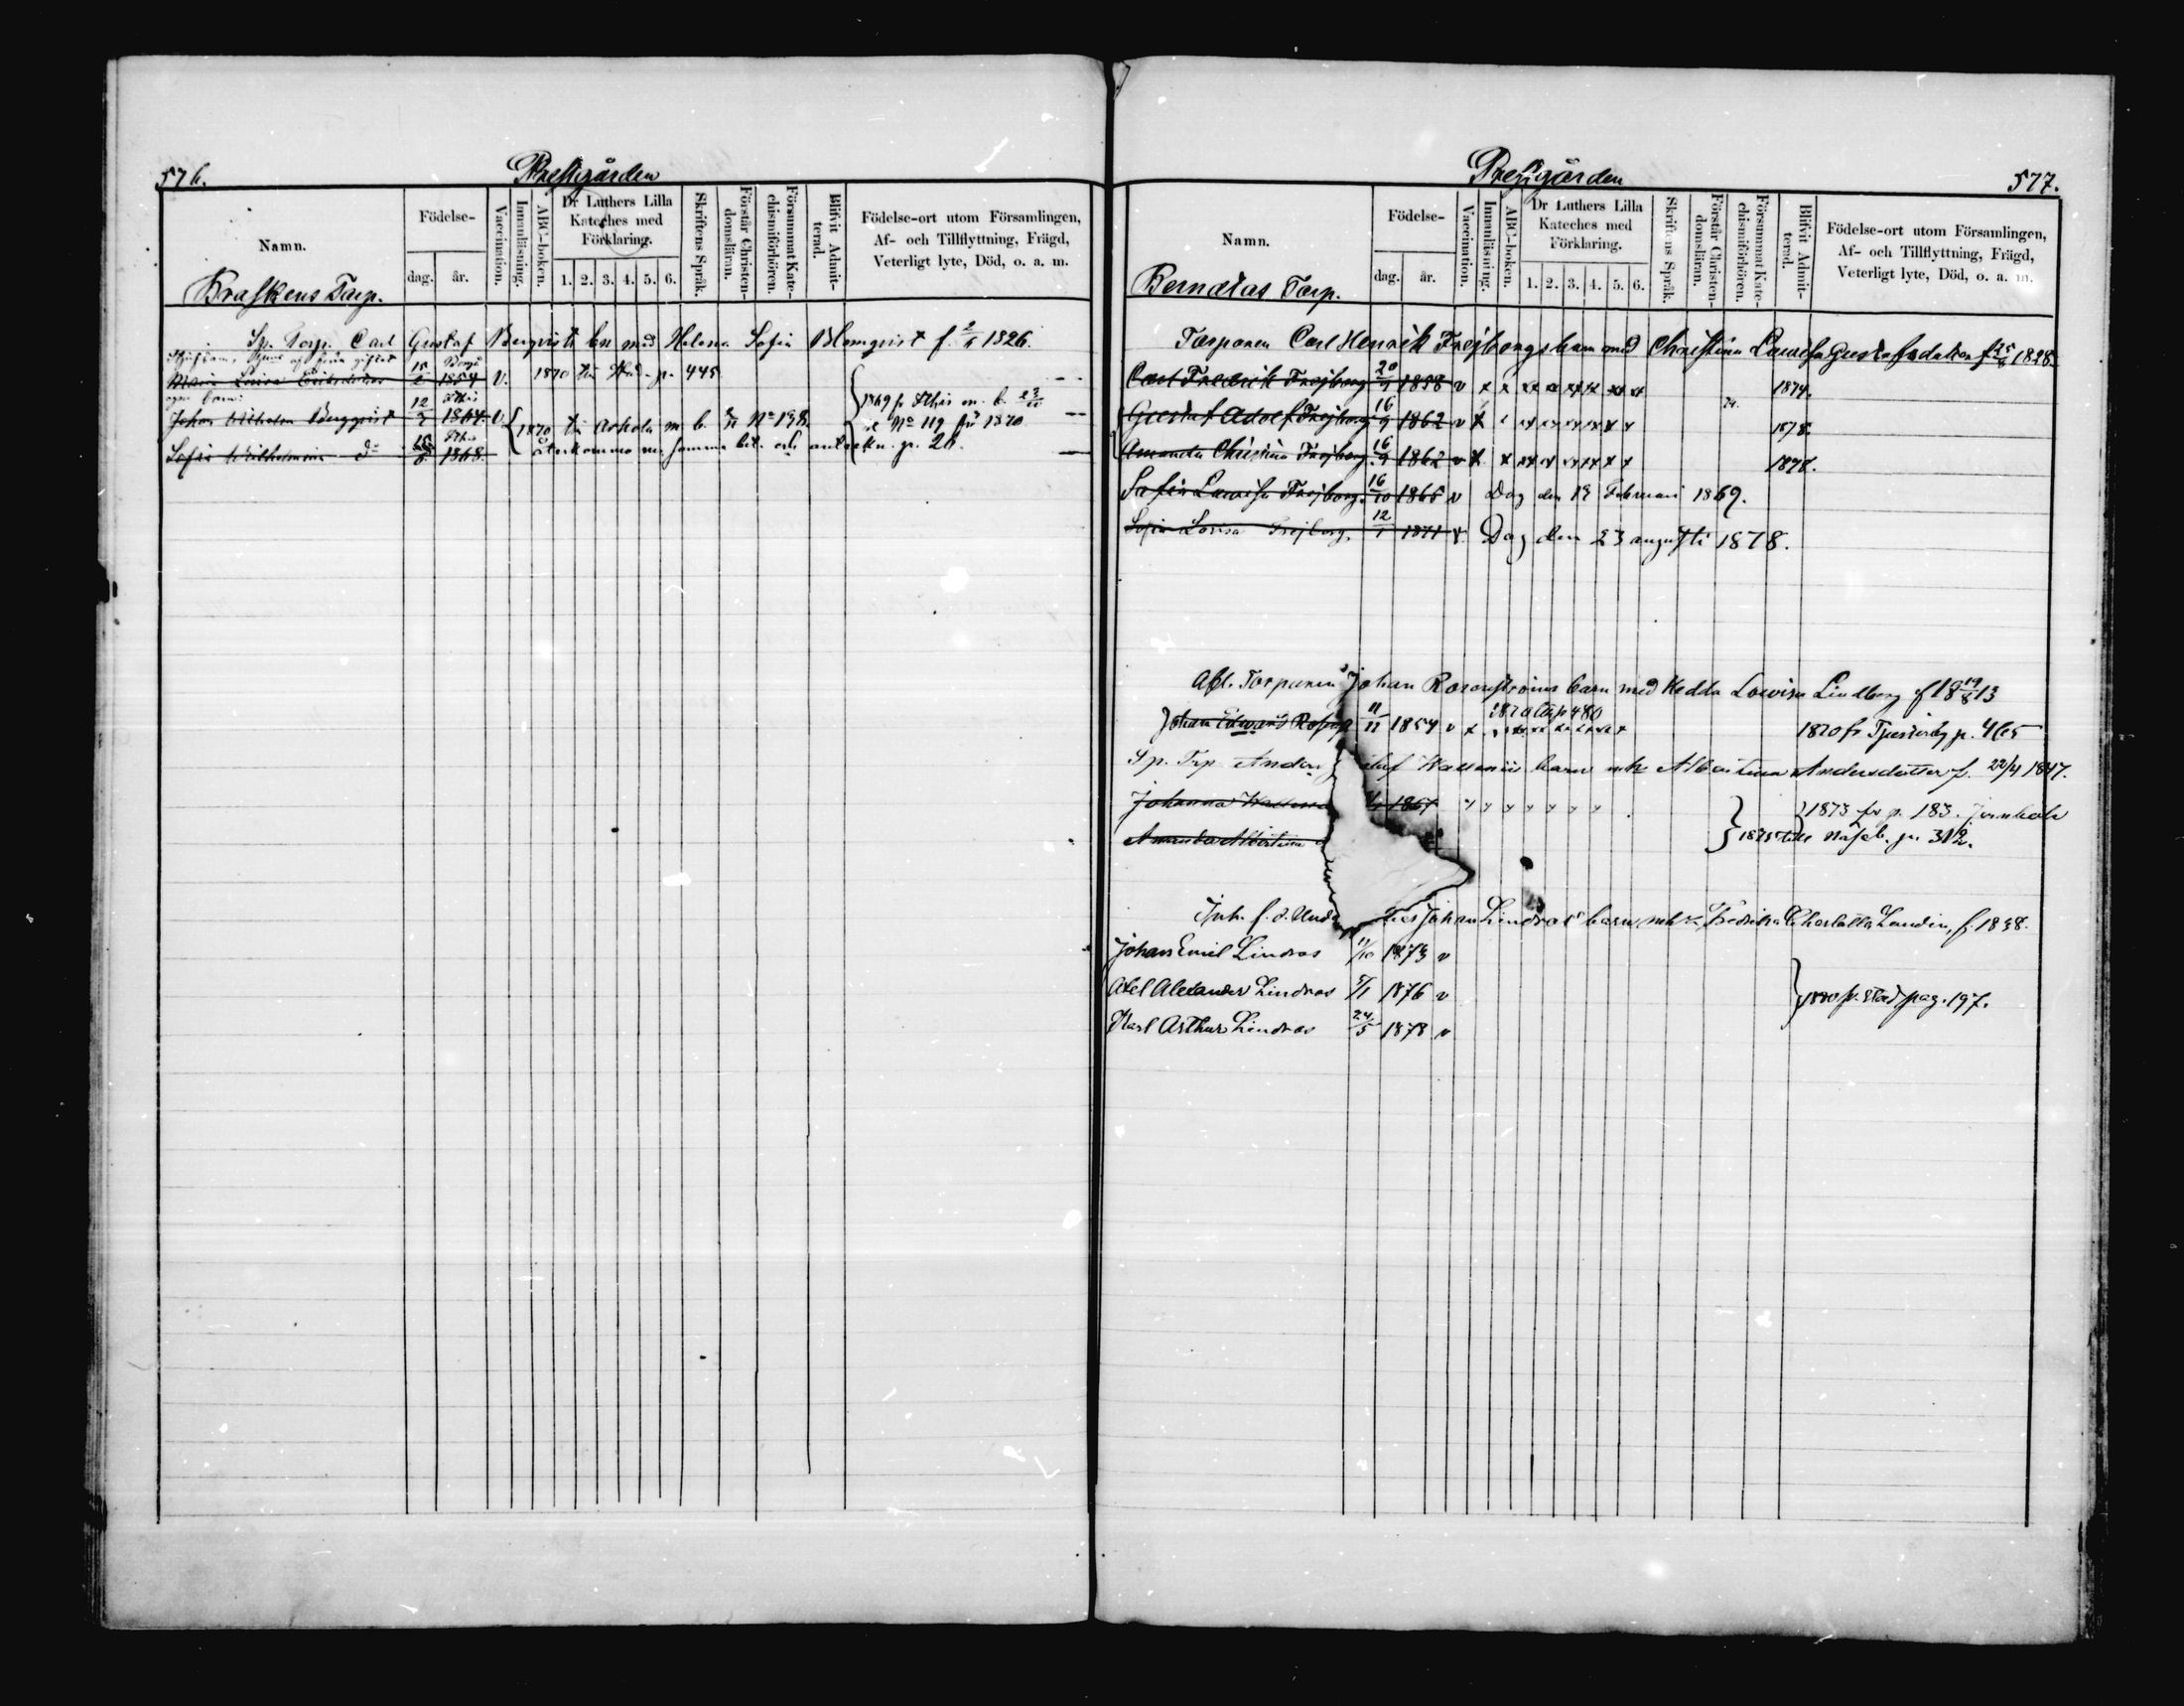 576.
Prestgården
Namn.
Födelse-
dag.
år.
Vaccination.
Innanläsning.
ABC-boken.
Dr Luthers Lilla
Kateches med
Förklaring.
1. 2. 3. 4. 5. 6.
Skriftens Språk.
Förstår Christen-
domsläran.
Försummat Kate-
chismiförhören.
Blifvit Admit-
terad.
Födelse-ort utom Församlingen,
Af- och Tillflyttning, Frägd,
Veterligt lyte, Död, o. a. m.
Braskens Torp.
Sp. Torp. Carl Gustaf Bergvists bn med Helena Sofia Blomqvist f. 2/5 1826.
Maria Lovisa 1854 v. 1870 till p. 445
egna barn:
Johan Wilhelm Bergqvist 12 1864. v. 1870 till m. b. No 198.
1869 fr. m. b. 23/11
No 119 för 1870
Sofia Wilhelmina do 1868. återkommo m. samma bet. och p. 26.
577.
Prestgården
Namn.
Födelse-
dag.
år.
Vaccination.
Innanläsning.
ABC-boken.
Dr Luthers Lilla
Kateches med
Förklaring.
1. 2. 3. 4. 5. 6.
Skriftens Språk.
Förstår Christen-
domsläran.
Försummat Kate-
chismiförhören.
Blifvit Admit-
terad.
Födelse-ort utom Församlingen,
Af- och Tillflyttning, Frägd,
Veterligt lyte, Död, o. a. m.
Berndtas Torp.
Torparen Carl Henrik Frejborgs barn med Christina Lawisa Gustafsdotter f. 1828.
Carl Fredrik Frejborg 20/9 1858 v 1874.
Gustaf Adolf Frejborg 16/9 1862 v 1878.
Amanda Christina Frejborg 16/9 1862 v 1878.
Sofia Lawisa Frejborg. 16/10 1865 v Dog den 19 Februari 1869.
Sofia Lovisa Frejborg. 12/1 1871 v. Dog den 23 augusti 1878.
Afl. Torparen Johan Rosenströms barn med Hedda Lowisa Lindberg f 18 19/8 13
Johan Edward 11/11 1854 v 1870 p 480
1870 fr p. 465
Sp. Trp Anders barn mh Albertina Andersdotter f. 22/4 1847.
Johanna 1867
1873 fr p. 183.
Amanda Albertina
p. 312.
Inh. f. d. Johan Lindroos barn mh Fredrika Charlotta Lundin, f. 1838.
Johan Emil Lindroos 11/10 1873 v
Axel Alexander Lindroos 5/1 1876 v
1880 fr. Stad pag. 197.
Karl Arthur Lindroos 24/5 1878 v